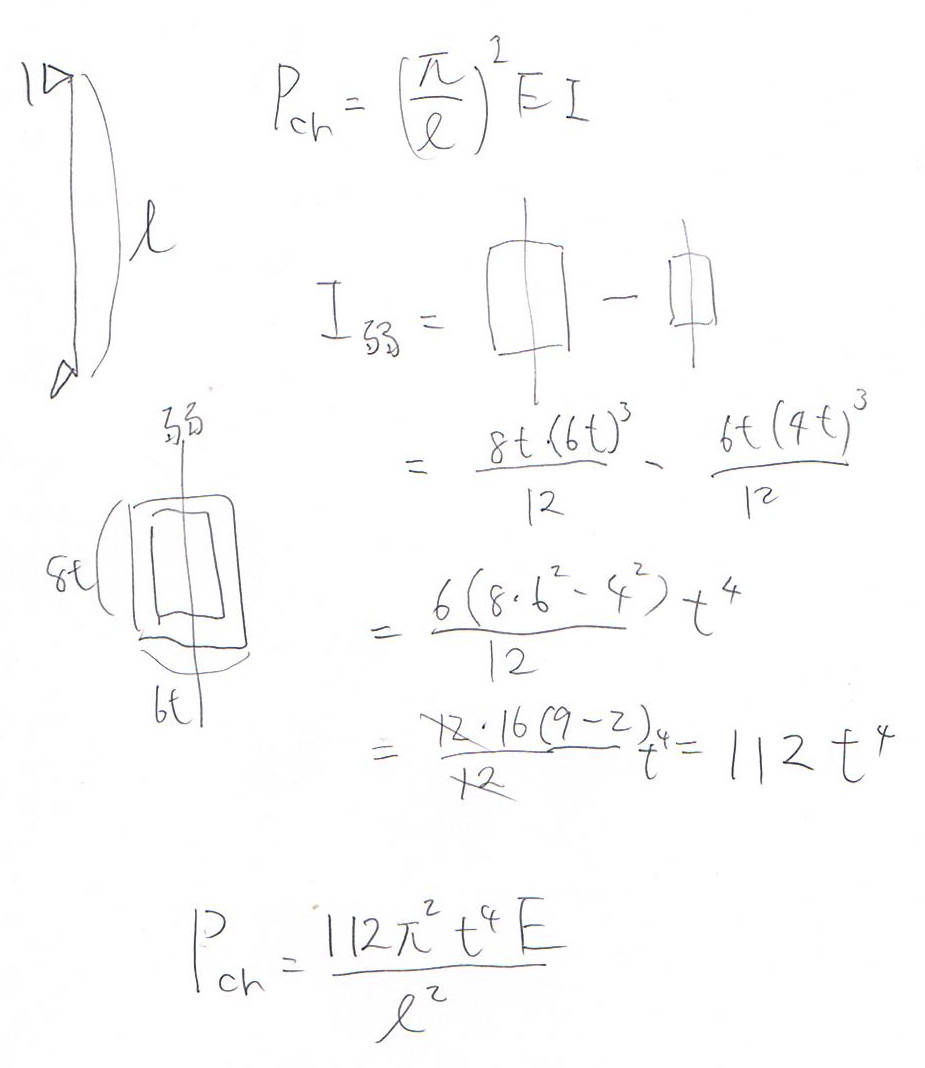 P_ch = (π/ℓ)² E I
ℓ
I_弱 = −
弱
= 8t·(6t)³/12 - 6t(4t)³/12
8t
= 6(8·6²-4²)/12 t⁴
6t
= 12·16(9-2)/12 t⁴ = 112t⁴
P_ch = 112π²t⁴E/ℓ²